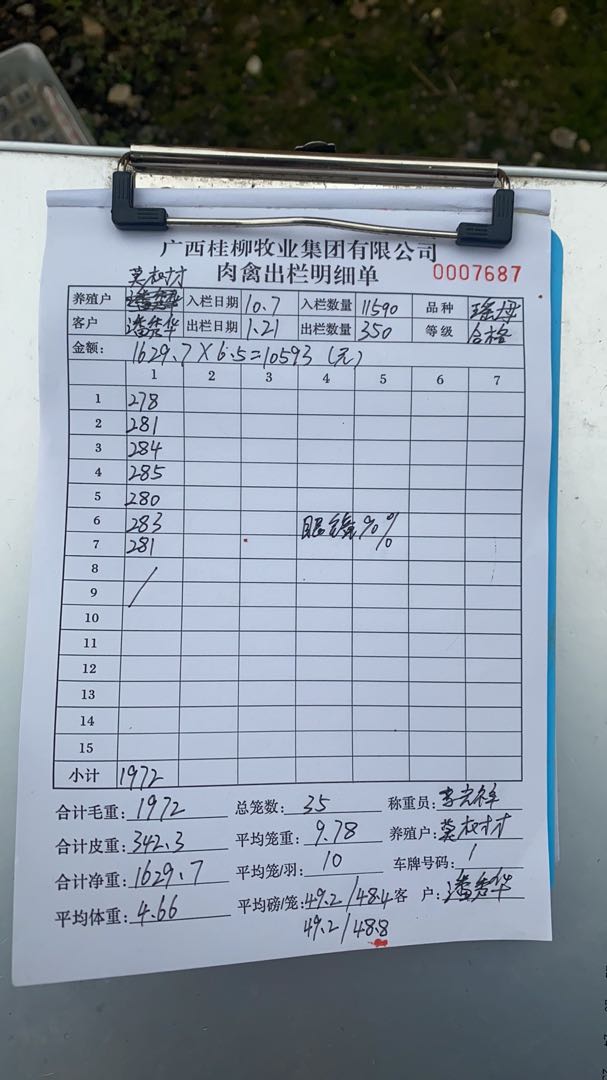 广西桂柳牧业集团有限公司
肉禽出栏明细单 0007687
养殖户 入栏日期 10.7 入栏数量 11590 品种 瑶母
客户 潘秀华 出栏日期 1.21 出栏数量 350 等级 合格
金额: 1629.7×6.5=10593(元)
1 2 3 4 5 6 7
1 278
2 281
3 284
4 285
5 280
6 283
7 281
8
9
10
11
12
13
14
15
小计 1972
合计毛重: 1972 总笼数: 35 称重员:
合计皮重: 342.3 平均笼重: 9.78 养殖户:
合计净重: 1629.7 平均笼/羽: 10 车牌号码: 1
平均体重: 4.66 平均磅/笼: 49.2/48.4 客 户: 潘秀华
49.2/48.8